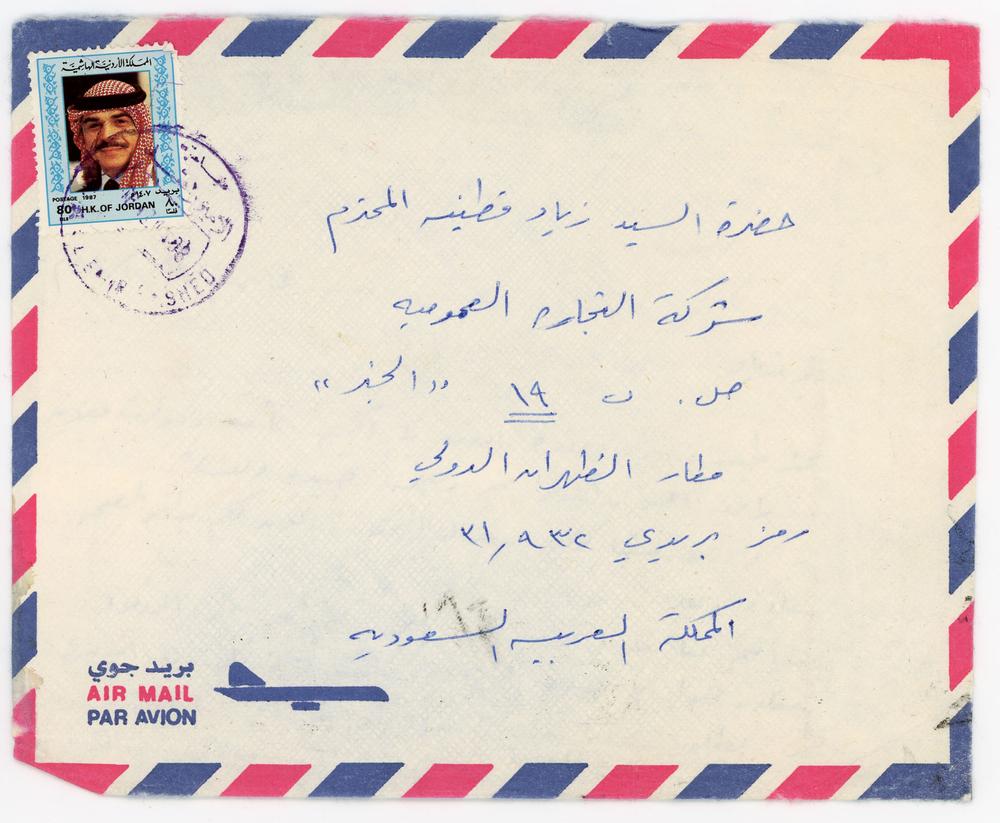 المملكة الأردنية الهاشمية
POSTAGE 1987 بريد ١٤٠٧م
80 H.K. OF JORDAN ٨٠
FILS فلسا
حضرة السيد زياد قطينه المحترم
شركة التجاره العموميه
ص. ب ١٩ "الخبر"
مطار الظهران الدولي
رمز بريدي ٣١٩٣٢
المملكة العربيه السعوديه
بريد جوي
AIR MAIL
PAR AVION